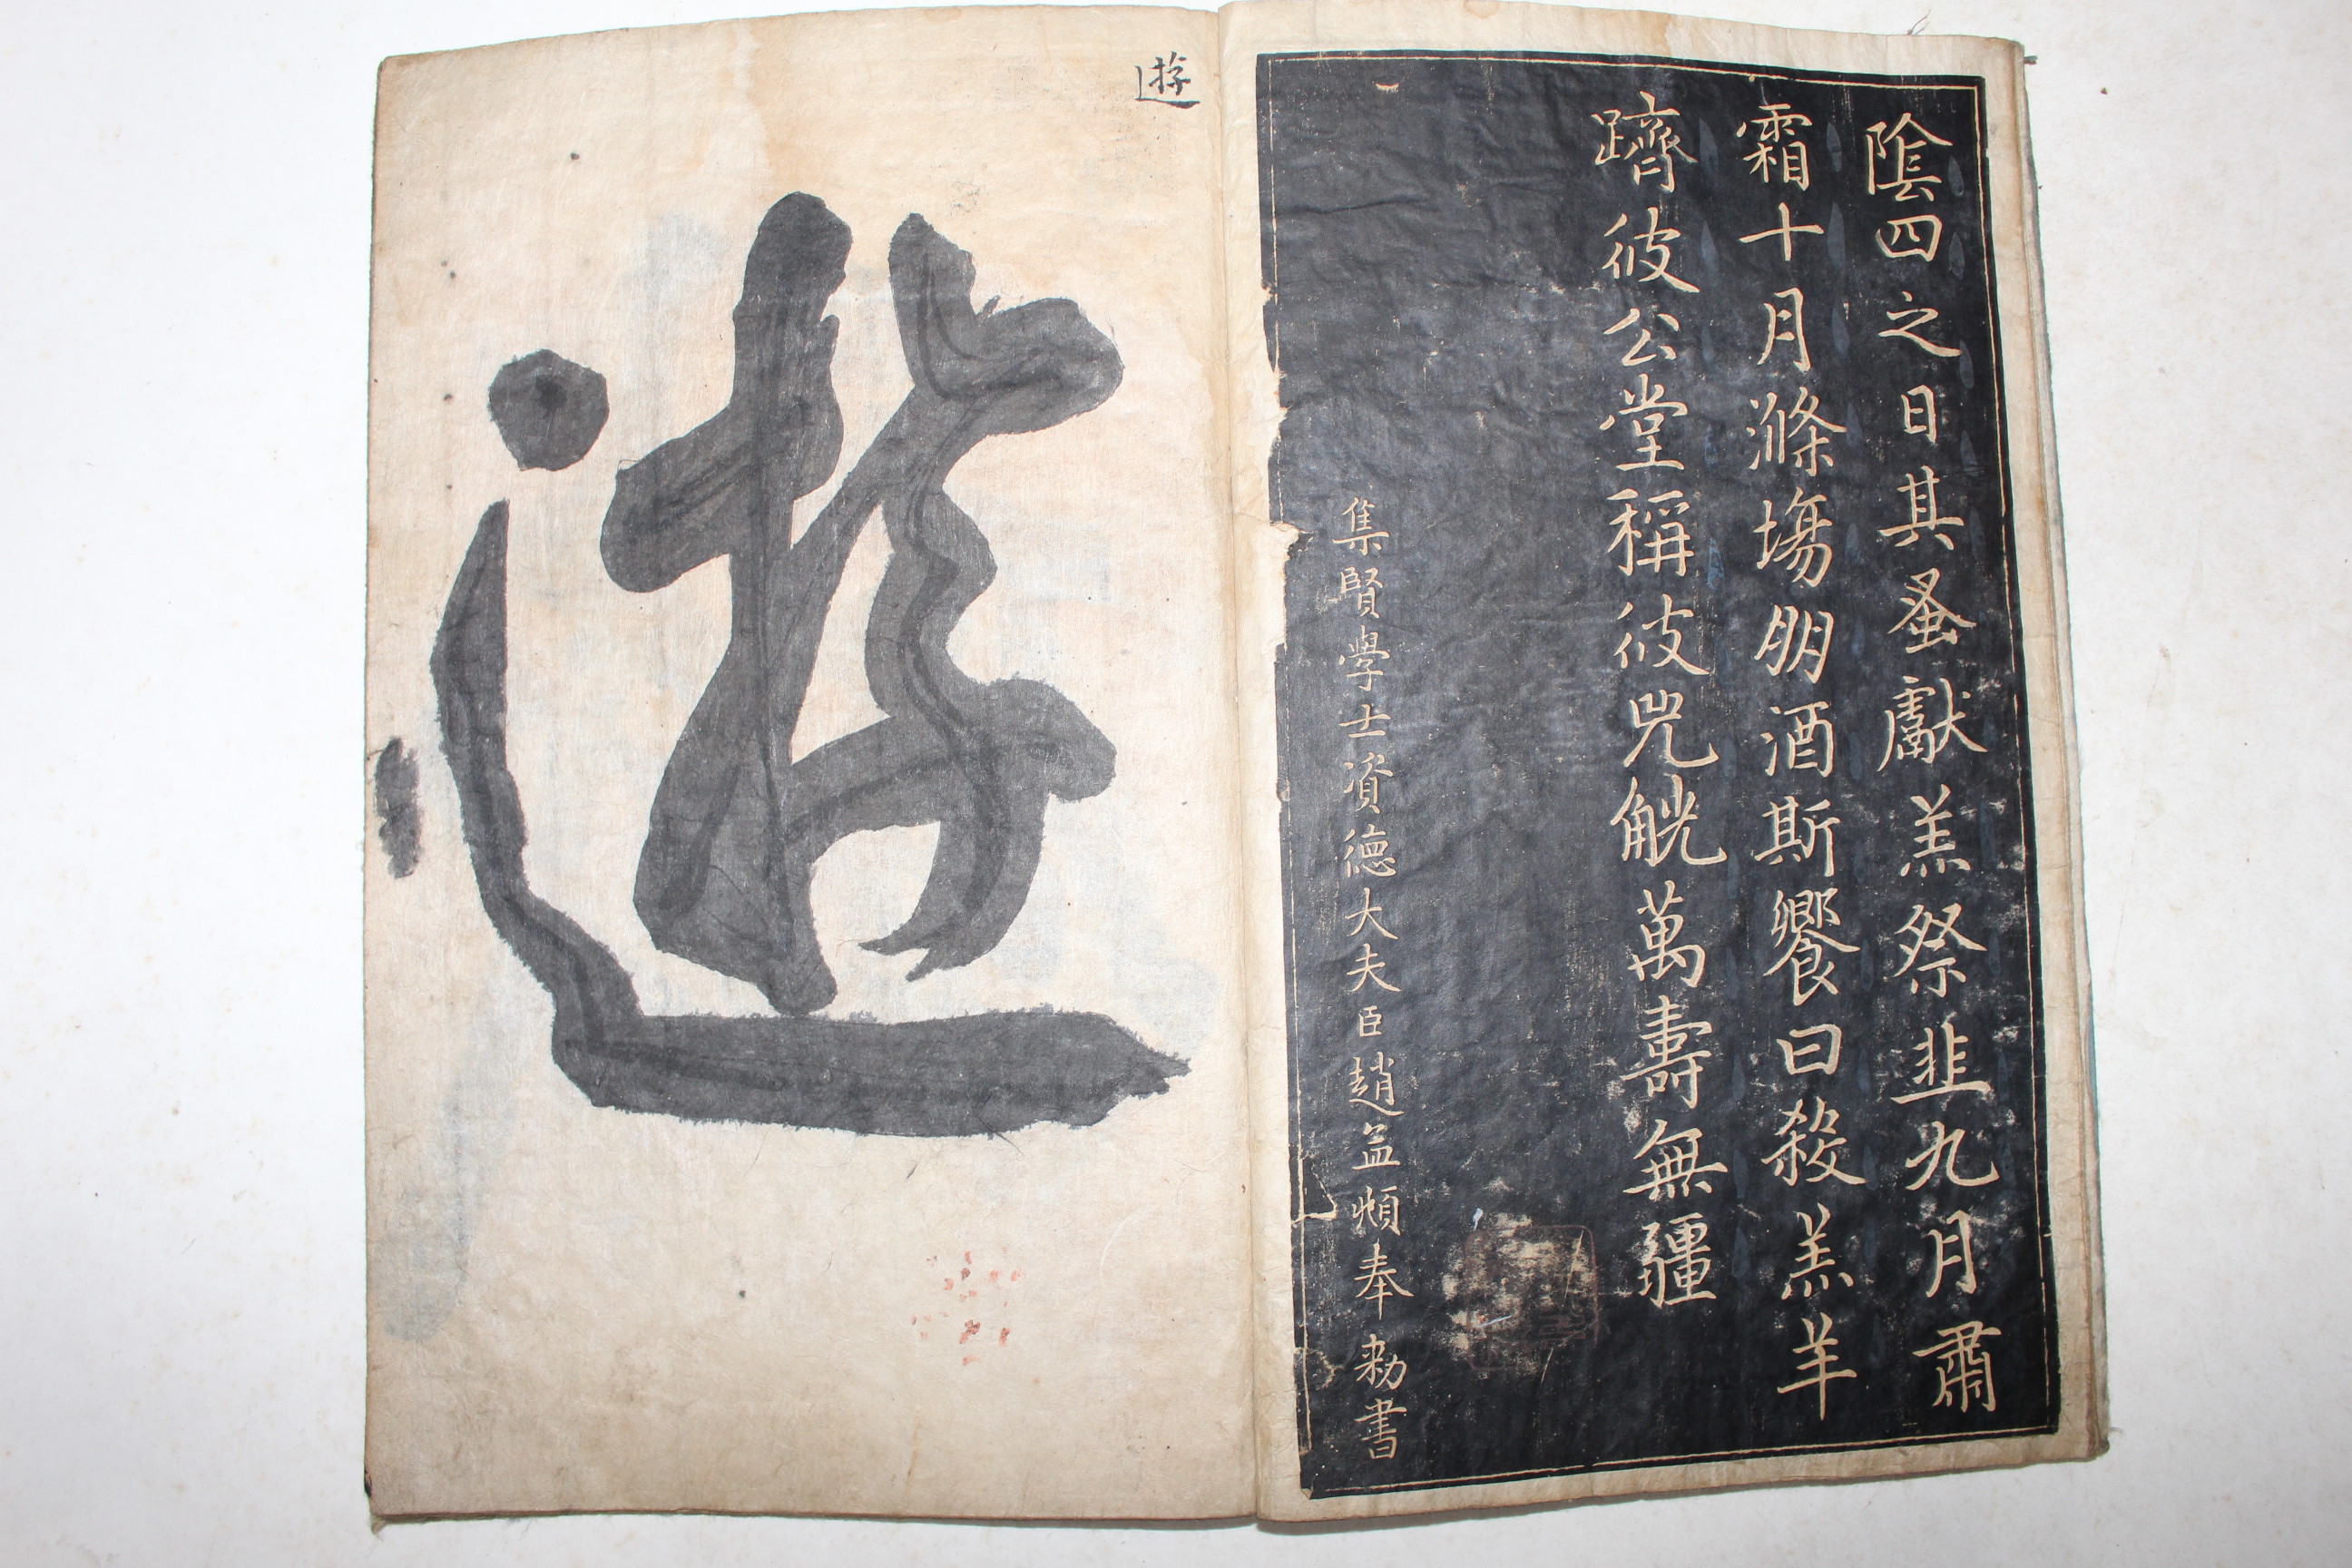 陰四之日其蚤獻羔祭韭九月肅
霜十月滌塲朋酒斯饗曰殺羔羊
躋彼公堂稱彼兕觥萬壽無疆
集賢學士資德大夫臣趙孟頫奉勑書
遊
遊